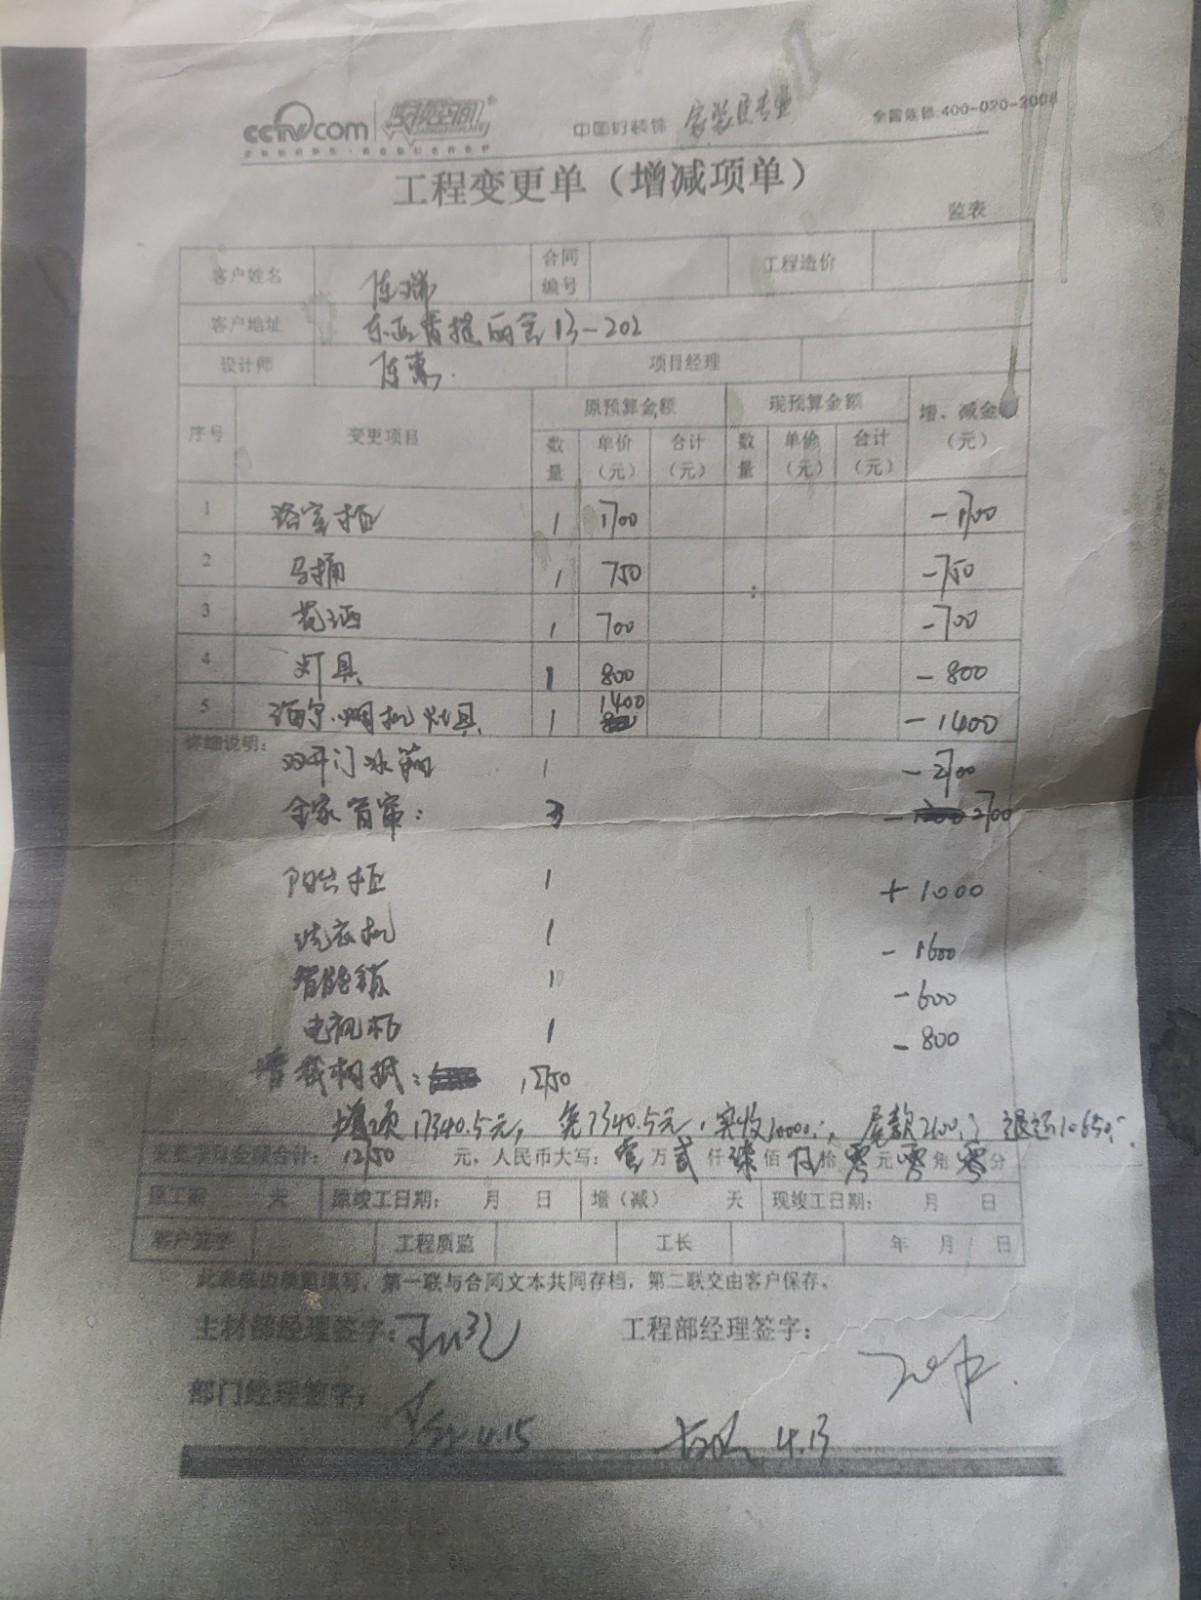 CCTV.com 中国好装饰 家装更专业 全国连锁:400-020-2008
工程变更单（增减项单）
监表
客户姓名 陈瑞 合同编号 工程造价
客户地址 13-202
设计师 陈 项目经理
序号 变更项目 原预算金额 现预算金额 增、减金
数量 单价（元） 合计（元） 数量 单价（元） 合计（元） （元）
1 浴室柜 1 1700 -1700
2 马桶 1 750 -750
3 花洒 1 700 -700
4 灯具 1 800 -800
5 海尔烟机灶具 1 1400 -1400
详细说明：
双开门冰箱 1 -2700
全家窗帘： 3 -2700
阳台柜 1 +1000
洗衣机 1 -1600
智能锁 1 -600
电视机 1 -800
增减相抵： 12750
增项17340.5元，免7340.5元，实收10000元，尾款2100元，退还10650元.
变更项目金额合计： 12750 元，人民币大写：壹万贰仟柒佰伍拾零元零角零分
原工期 天 原竣工日期： 月 日 增（减） 天 现竣工日期： 月 日
客户签字 工程质监 工长 年 月 日
填写，第一联与合同文本共同存档，第二联交由客户保存。
主材部经理签字： 工程部经理签字：
部门经理签字：
4.15 4.13